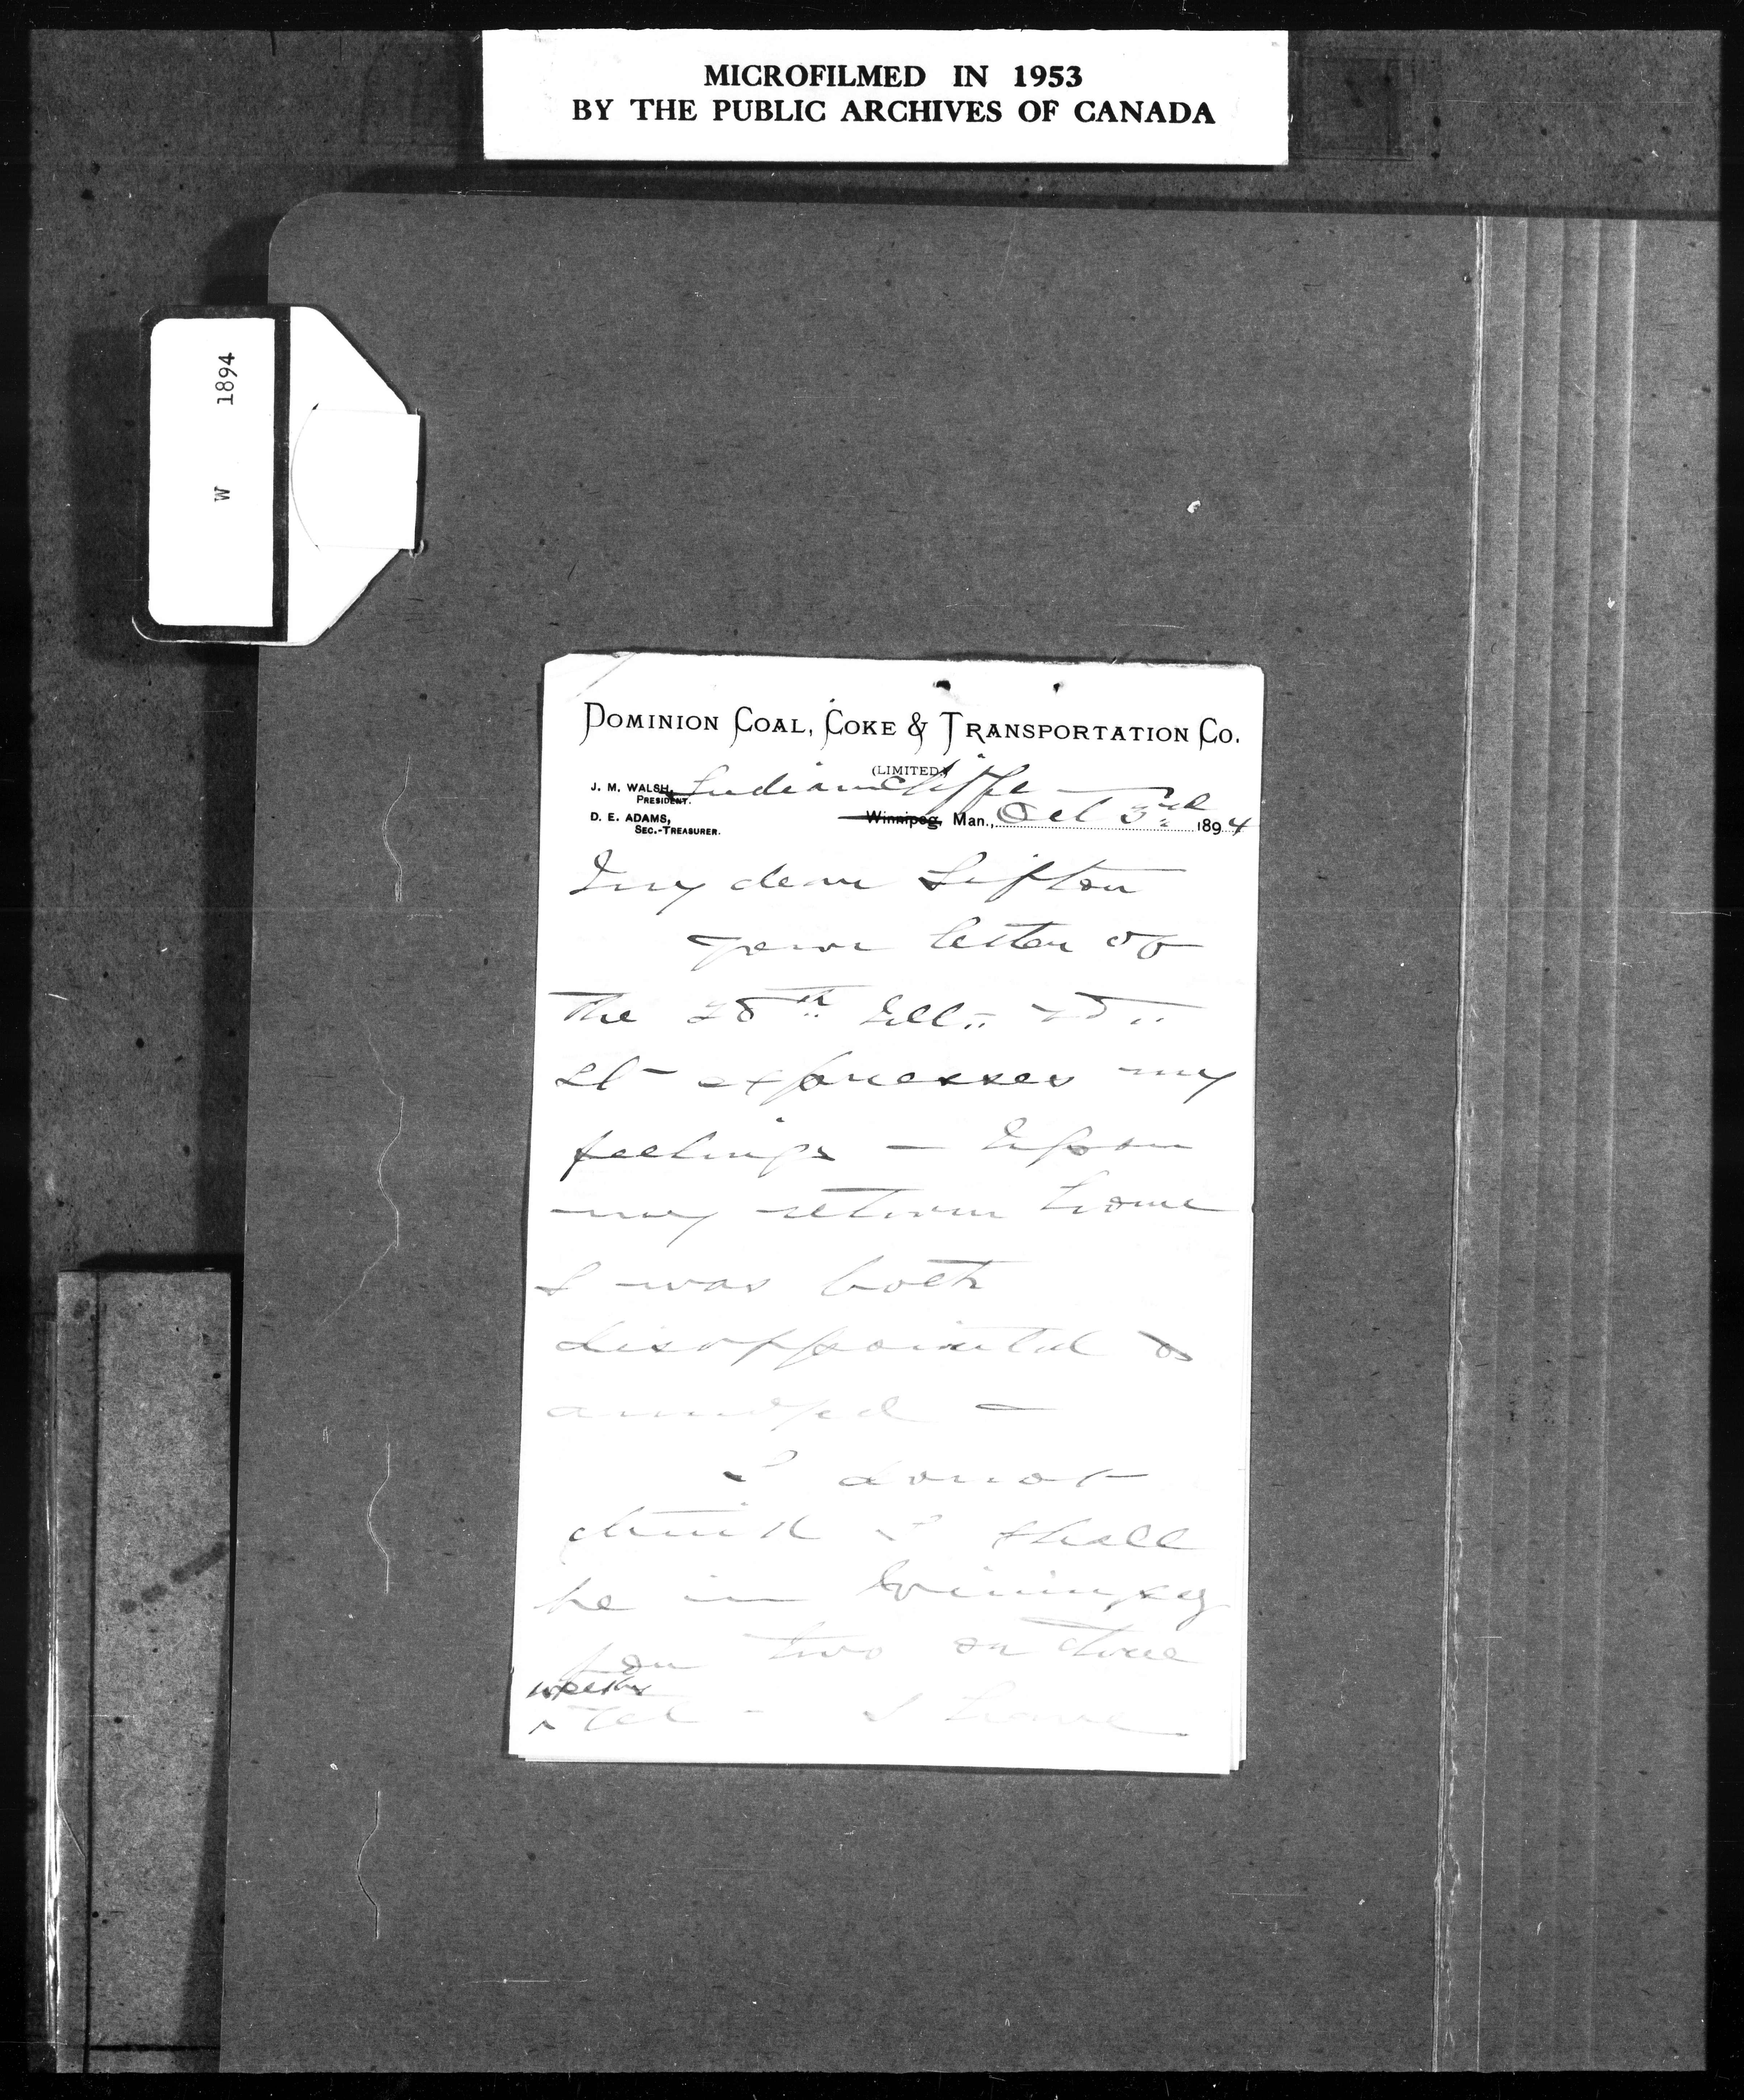 MICROFILMED IN 1953
BY THE PUBLIC ARCHIVES OF CANADA
W 1894
DOMINION COAL, COKE & TRANSPORTATION CO.
(LIMITED.)
J. M. WALSH,
PRESIDENT.
D. E. ADAMS,
SEC.-TREASURER.
Indiancliffe
Winnipeg, Man., Oct 3rd 1894
My dear Sifton
your letter of
the 28th Ult
It expresses my
feelings — Upon
my return home
I was both
disappointed &
annoyed —
I do not
think I shall
be in Winnipeg
for two or three
weeks
yet - I have